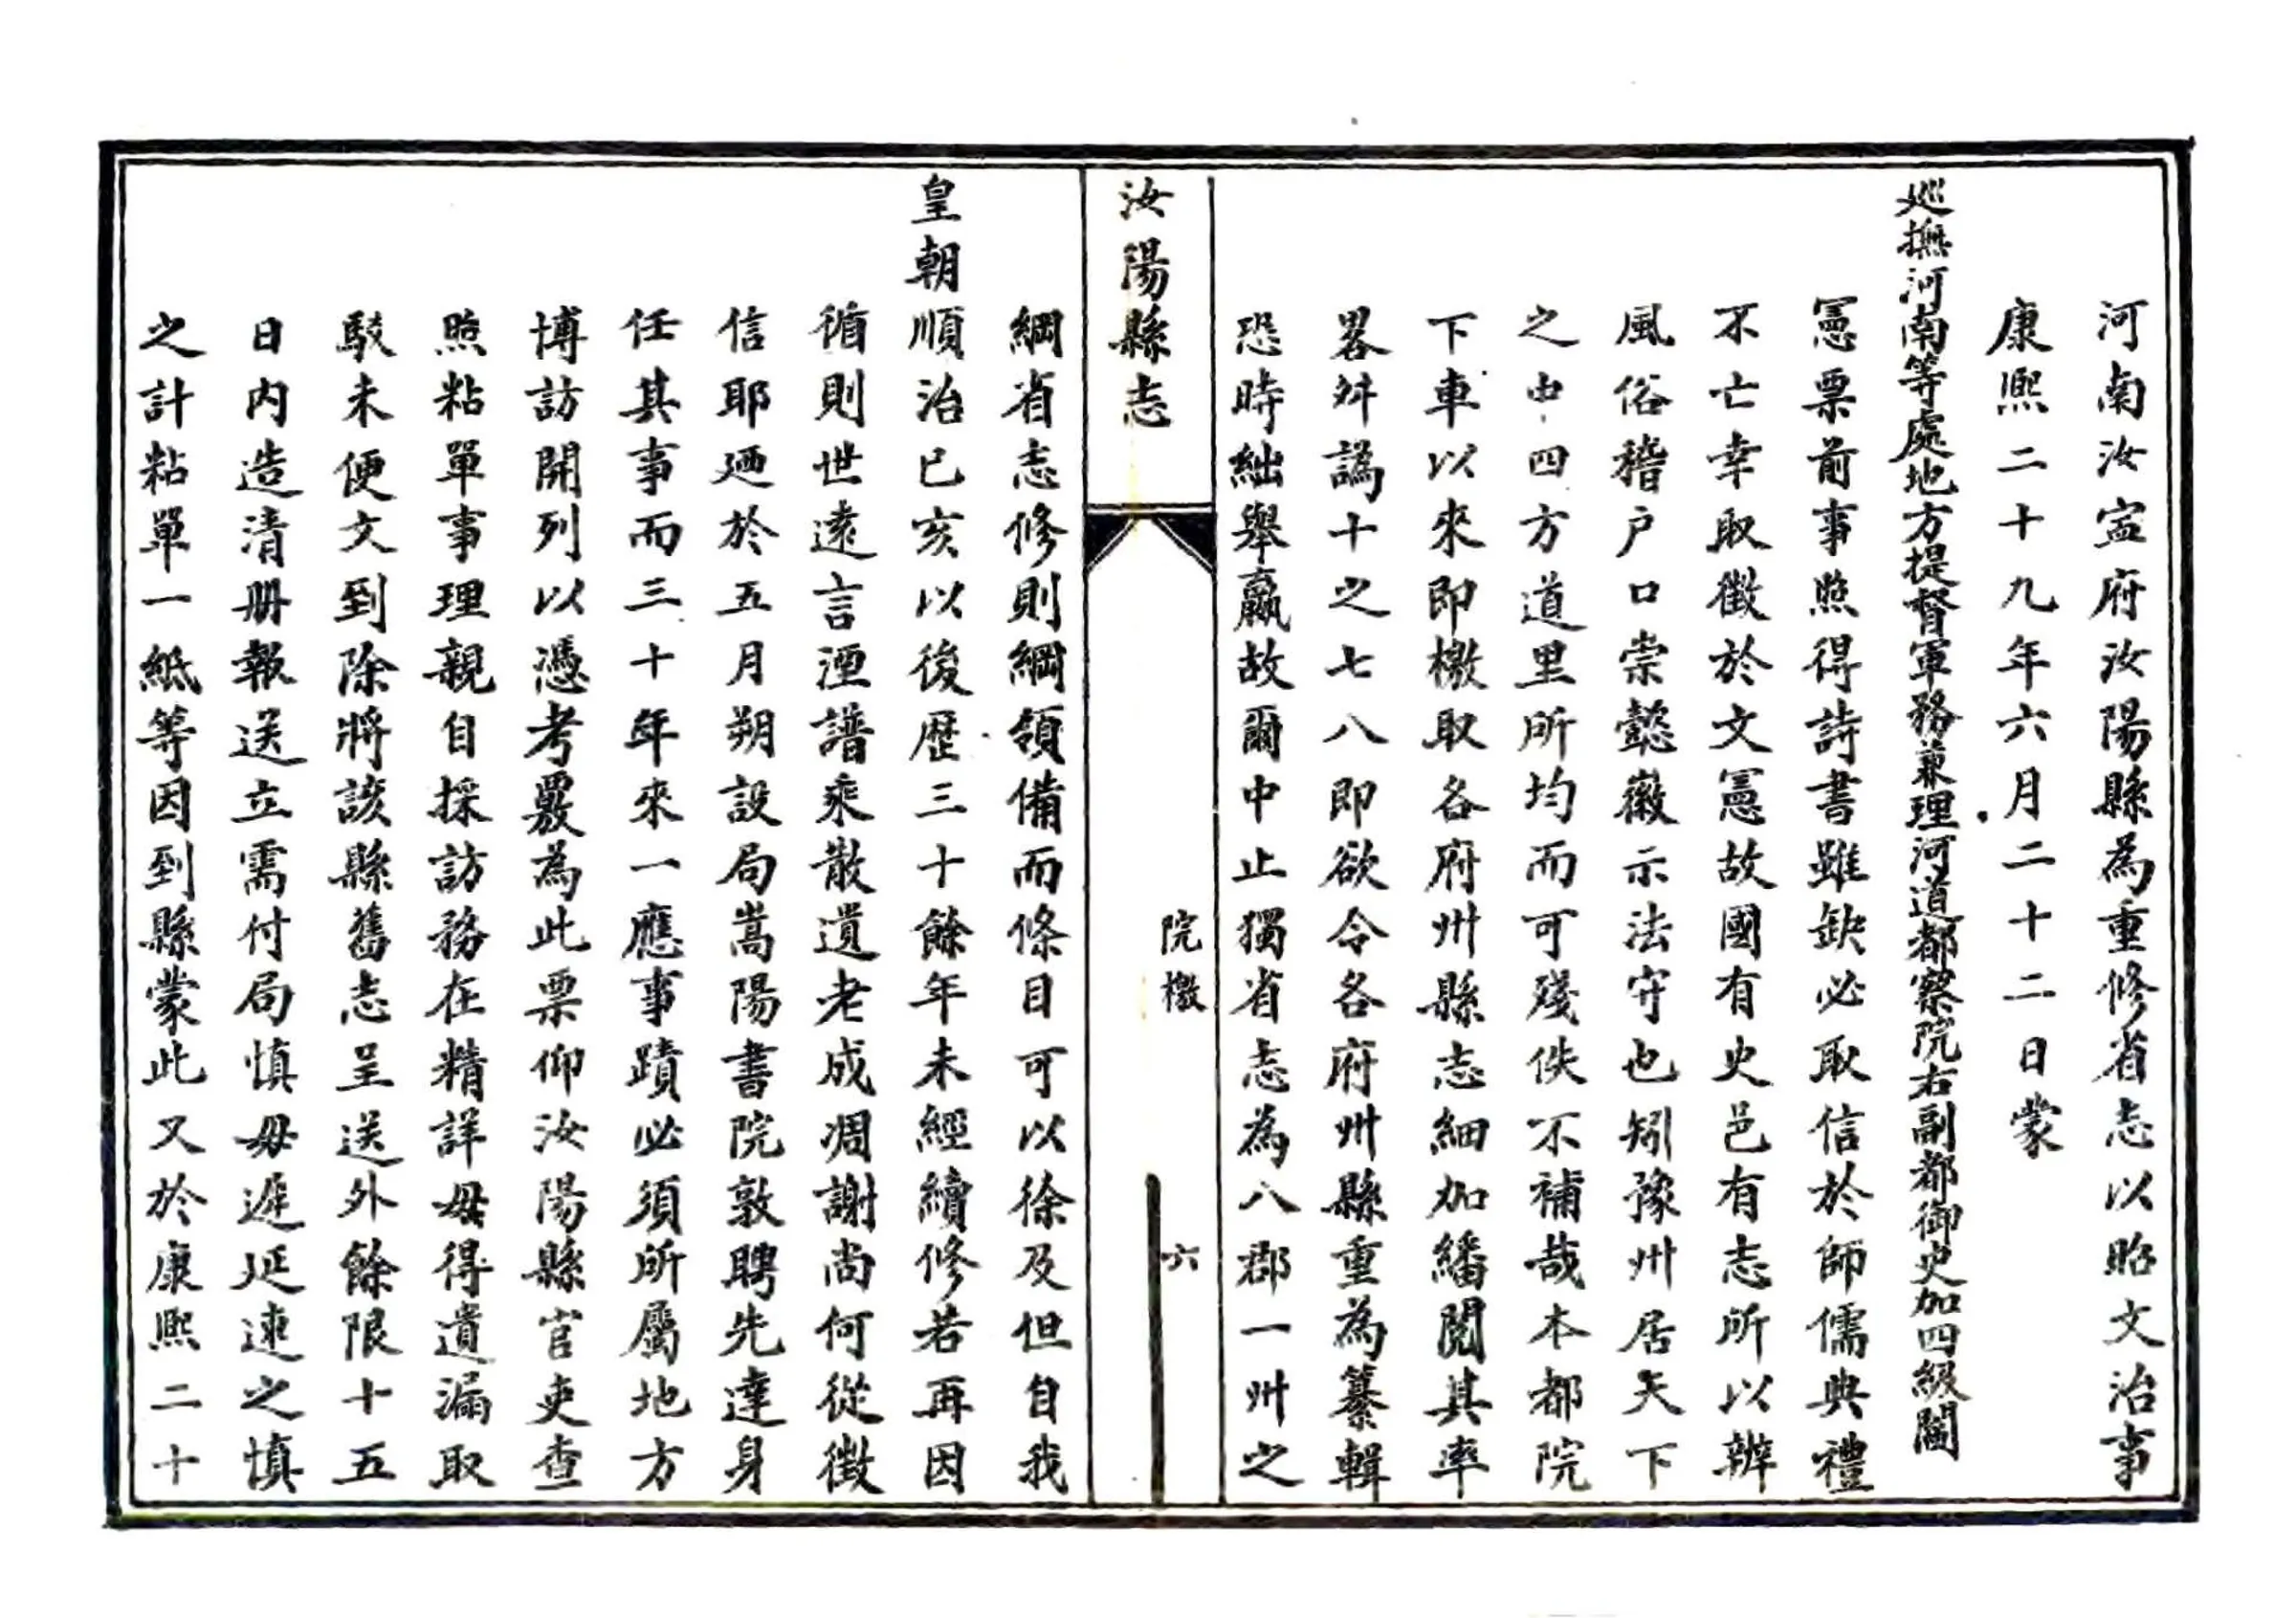 河南汝寍府汝陽縣為重修省志以昭文治事
康熙二十九年六月二十二日蒙
巡撫河南等處地方提督軍務兼理河道都察院右副都御史加四級閻
憲票前事照得詩書雖缺必取信於師儒典禮
不亡幸取徵於文憲故國有史邑有志所以辨
風俗稽户口崇懿徽示法守也矧豫州居天下
之中四方道里所均而可殘佚不補哉本都院
下車以來即檄取各府州縣志細加繙閱其率
畧舛譌十之七八即欲令各府州縣重為纂輯
恐時絀舉羸故爾中止獨省志為八郡一州之
汝陽縣志
院檄
六
綱省志修則綱領備而條目可以徐及但自我
皇朝順治已亥以後歷三十餘年未經續修若再因
循則世遠言湮譜乘散遺老成凋謝尚何從徵
信耶廼於五月朔設局嵩陽書院敦聘先達身
任其事而三十年來一應事蹟必須所屬地方
博訪開列以憑考覈為此票仰汝陽縣官吏查
照粘單事理親自採訪務在精詳毋得遺漏取
駁未便文到除將該縣舊志呈送外餘限十五
日内造清册報送立需付局慎毋遲延速之慎
之計粘單一紙等因到縣蒙此又於康熙二十